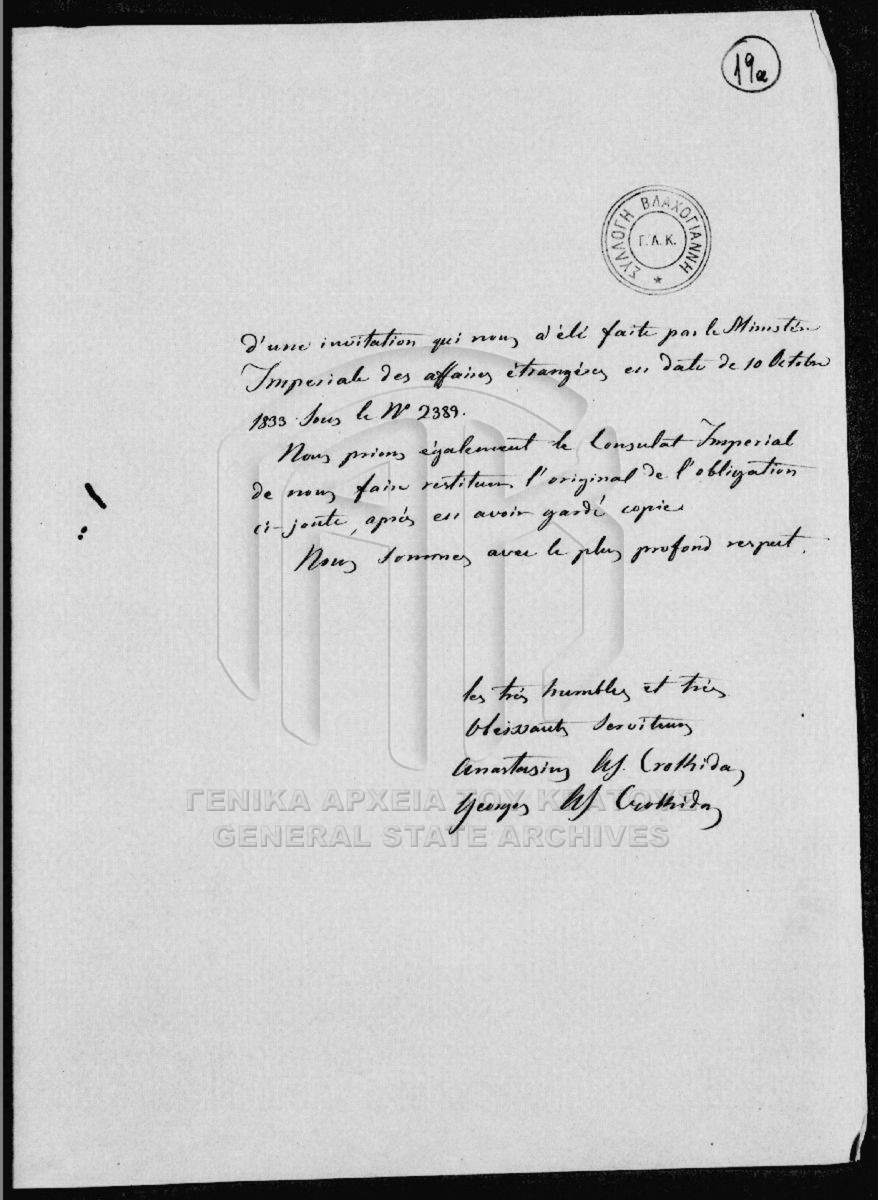 19a
ΣΥΛΛΟΓΗ ΒΛΑΧΟΓΙΑΝΝΗ
Γ.Α.Κ.
d'une invitation qui nous a été faite par le Ministère
Imperiale des affaires étrangères en date de 10 Octobre
1833 sous le N° 2389.
Nous prions également le Consulat Imperial
de nous faire restituer l'original de l'obligation
ci-jointe, après en avoir gardé copie.
Nous sommes avec le plus profond respect.
les très humbles et très
obeissants serviteurs
Anastasius
Georges
ΓΕΝΙΚΑ ΑΡΧΕΙΑ ΤΟΥ ΚΡΑΤΟΥΣ
GENERAL STATE ARCHIVES